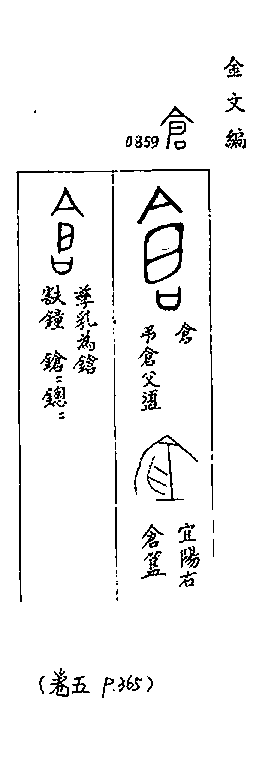 金文編
倉
0859
倉
弔倉父盨
宜陽右
倉簋
孳乳為鎗
㝬鐘 鎗=鏓=
(卷五 P.365)